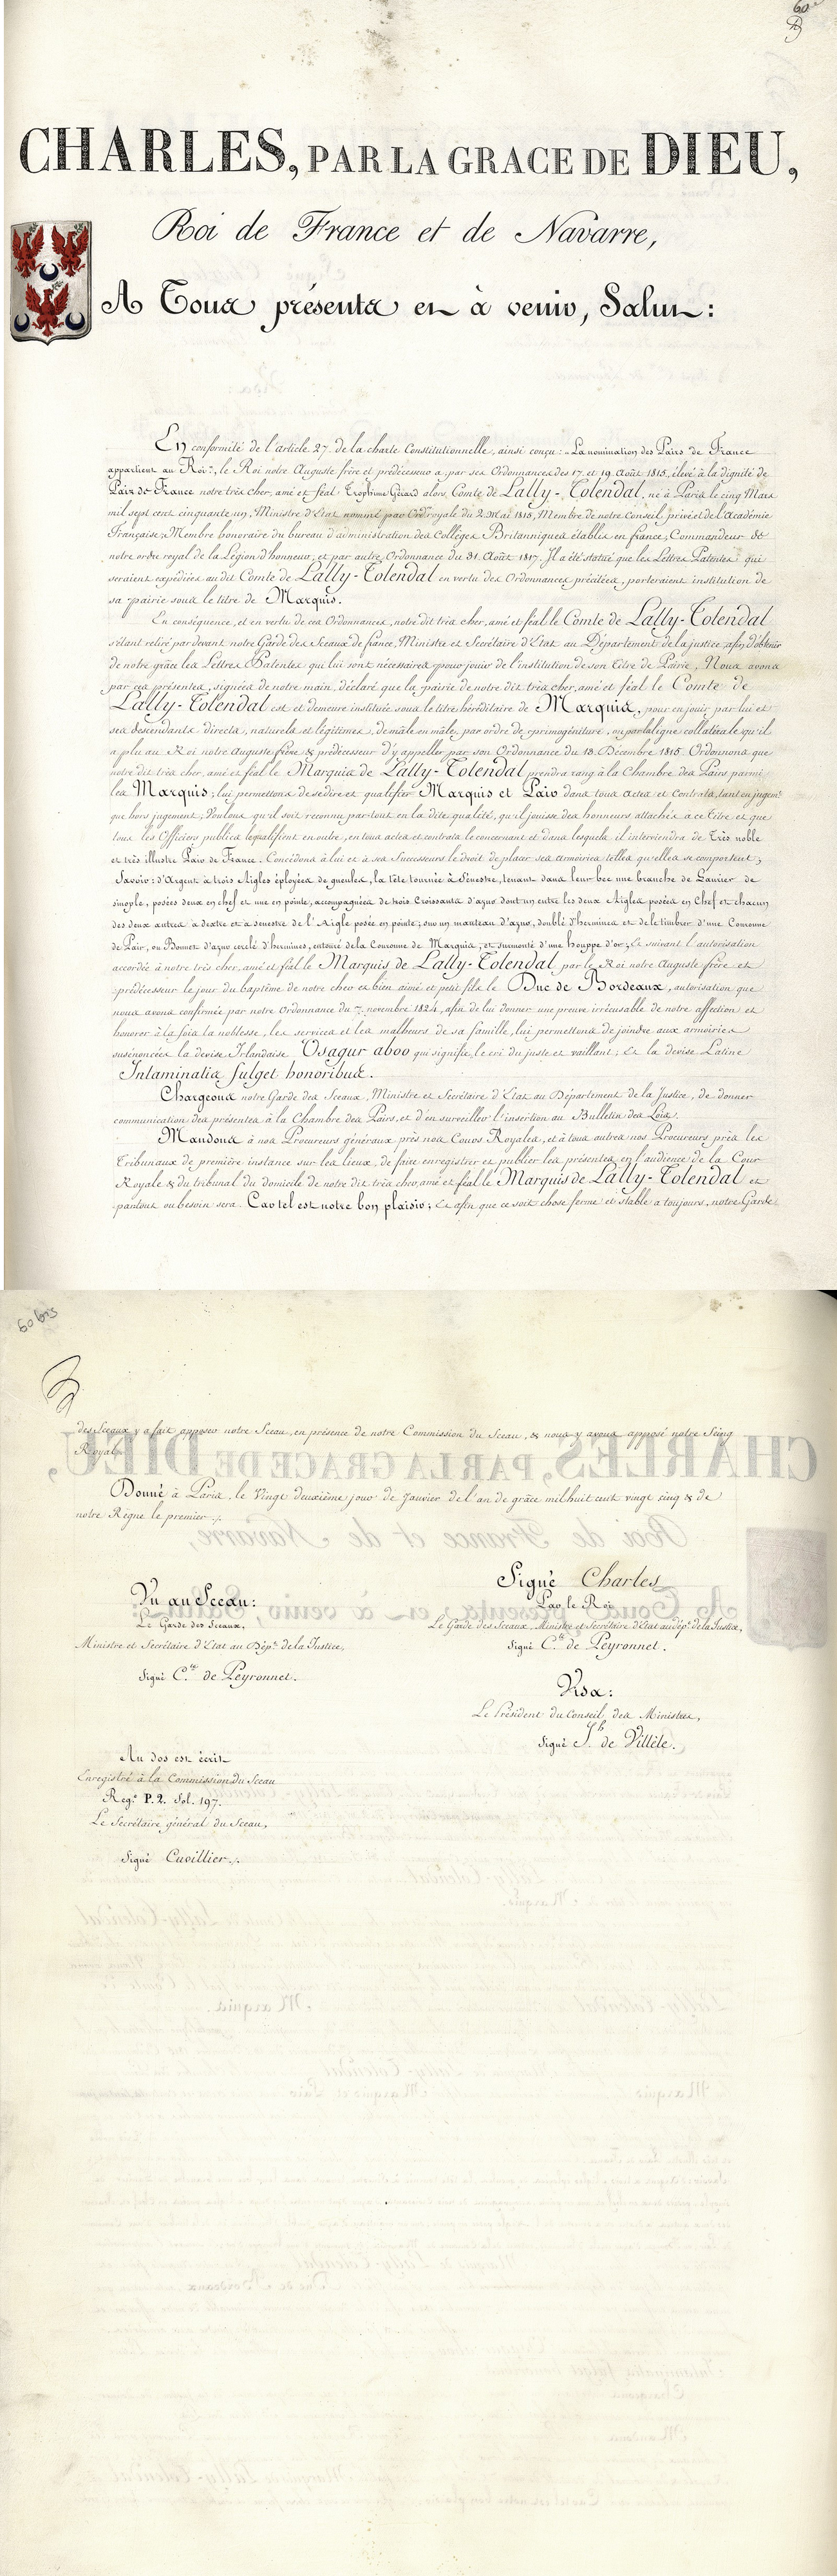 60
CHARLES, PAR LA GRACE DE DIEU,
Roi de France et de Navarre,
A Tous présents et à venir, Salut:
En conformité de l'article 27 de la charte Constitutionnelle, ainsi conçu: "La nomination des Pairs de France
appartient au Roi", le Roi notre Auguste frère et prédécesseur a, par ses Ordonnances des 17 et 19 Août 1815, élevé à la dignité de
Pair de France notre très cher, amé et féal Trophime Gérard alors Comte de Lally-Tolendal, né à Paris le cinq Mars
mil sept cent cinquante un, Ministre d'Etat nommé par Ord. royale du 2 Mai 1815, Membre de notre Conseil privé et de l'Académie
Française, Membre honoraire du bureau d'administration des Collèges Britanniques établis en france, Commandeur de
notre ordre royal de la Légion d'honneur, et par autre Ordonnance du 31 Août 1817. Il a été statué que les Lettres Patentes qui
seraient expédiées au dit Comte de Lally-Tolendal en vertu des Ordonnances précitées, porteraient institution de
sa pairie sous le titre de Marquis.
En conséquence, et en vertu de ces Ordonnances, notre dit très cher, amé et féal le Comte de Lally-Tolendal
s'étant retiré pardevant notre Garde des Sceaux de france, Ministre et Secrétaire d'Etat au Département de la justice, afin d'obtenir
de notre grâce les Lettres Patentes qui lui sont nécessaires pour jouir de l'institution de son Titre de Pairie, Nous avons
par ces présentes, signées de notre main, déclaré que la pairie de notre dit très cher, amé et féal le Comte de
Lally-Tolendal est et demeure instituée sous le titre héréditaire de Marquis, pour en jouir par lui et
ses descendants directs, naturels et légitimes, de mâle en mâle, par ordre de primogéniture, ou par la ligne collatérale qu'il
a plu au Roi notre Auguste frère & prédécesseur d'y appeller par son Ordonnance du 13 Décembre 1815. Ordonnons que
notre dit très cher, amé et féal le Marquis de Lally-Tolendal prendra rang à la Chambre des Pairs parmi
les Marquis; lui permettons de se dire et qualifier Marquis et Pair dans tous actes et Contrats, tant en jugem.t
que hors jugement; Voulons qu'il soit reconnu partout en la dite qualité, qu'il jouisse des honneurs attachés à ce titre et que
tous les Officiers publics le qualifient en outre, en tous actes et contrats le concernant et dans lesquels il interviendra de Très noble
et très illustre Pair de France. Concédons à lui et à ses Successeurs le droit de placer ses armoiries telles qu'elles se comportent;
Savoir: d'Argent à trois Aigles éployées de gueules, la tête tournée à Sénestre, tenant dans leur bec une branche de Laurier de
sinople, posées deux en chef et une en pointe, accompagnées de trois Croissants d'azur dont un entre les deux Aigles posées en Chef et chacun
des deux autres à dextre et à senestre de l'Aigle posée en pointe; sur un manteau d'azur, doublé d'hermines et de le timbrer d'une Couronne
de Pair, ou Bonnet d'azur cerclé d'hermines, entouré de la Couronne de Marquis, et surmonté d'une houppe d'or; Et suivant l'autorisation
accordée à notre très cher, amé et féal le Marquis de Lally-Tolendal par le Roi notre Auguste frère et
prédécesseur le jour du baptême de notre cher et bien aimé et petit fils le Duc de Bordeaux, autorisation que
nous avons confirmée par notre Ordonnance du 7 novembre 1824, afin de lui donner une preuve irrécusable de notre affection et
honorer à la fois la noblesse, les services et les malheurs de sa famille, lui permettons de joindre aux armoiries
susénoncées la devise Irlandaise Osagur aboo qui signifie, le cri du juste et vaillant; Et la devise Latine
Intaminatis fulget honoribus.
Chargeons notre Garde des Sceaux, Ministre et Secrétaire d'Etat au Département de la Justice, de donner
communication des présentes à la Chambre des Pairs, et d'en surveiller l'insertion au Bulletin des Lois.
Mandons à nos Procureurs généraux près nos Cours Royales, et à tous autres nos Procureurs près les
Tribunaux de première instance sur les lieux, de faire enregistrer et publier les présentes, en l'audience de la Cour
Royale & du tribunal du domicile de notre dit très cher, amé et féal le Marquis de Lally-Tolendal et
partout où besoin sera. Car tel est notre bon plaisir; Et afin que ce soit chose ferme et stable à toujours, notre Garde
60 bis
des Sceaux y a fait apposer notre Sceau, en présence de notre Commission du Sceau, & nous y avons apposé notre Seing
Royal.
Donné à Paris, le Vingt deuxième jour de Janvier de l'an de grâce mil huit cent vingt cinq & de
notre Règne le premier ./.
Signé Charles
Par le Roi
Le Garde des Sceaux, Ministre et Secrétaire d'Etat au dép.t de la Justice,
Signé C.te de Peyronnet.
Vu au Sceau:
Le Garde des Sceaux,
Ministre et Secrétaire d'Etat au Dép.t de la Justice,
Signé C.te de Peyronnet.
Visa:
Le Président du Conseil des Ministres,
Signé J.h de Villèle.
Au dos est écrit
Enregistré à la Commission du Sceau
Reg.e P. 2. fol. 197.
Le Secrétaire général du Sceau,
Signé Cuvillier ./.